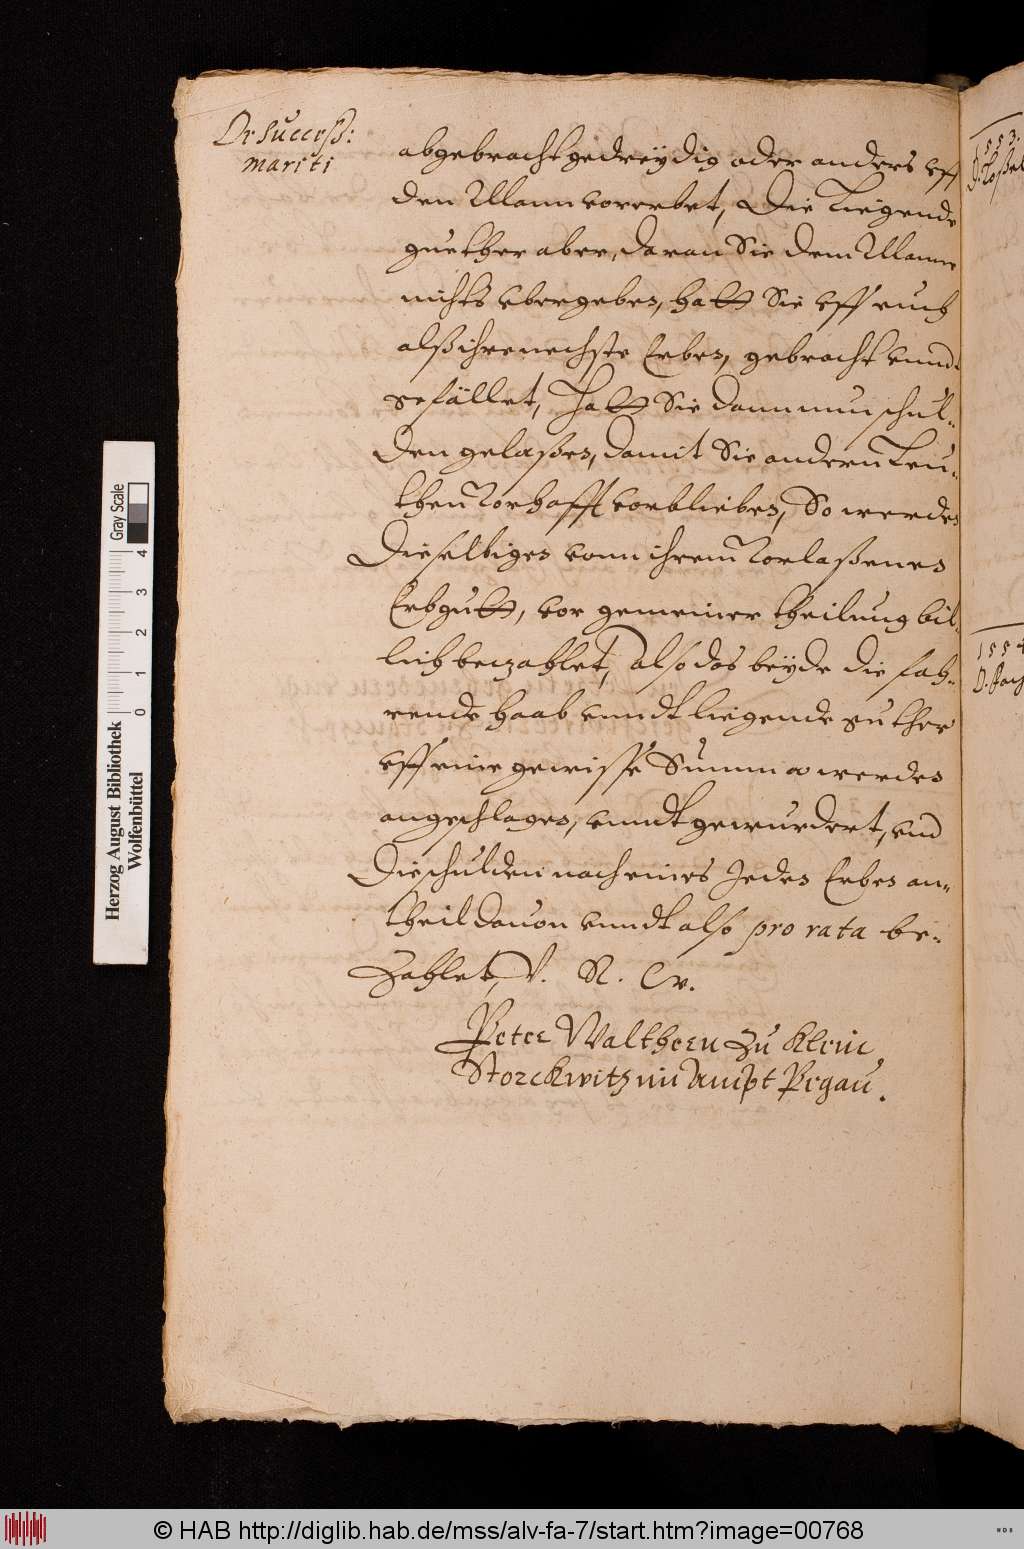 De Success:
mariti
abgebracht gedreÿdig oder anders vff
den Mann vorerbet, Die Liegende
guether aber, daran Sie dem Manne
nichts vbergeben, hatt Sie vff euch
alß ihre nechste Erben, gebracht vnnd
gefället, Hatt Sie dann nun schul-
den gelaßen, damit Sie andern Leu-
then vorhafft vorblieben, So werden
Dieselbigen vonn ihrem vorlaßenen
Erbgutt, vor gemeiner theilung bil-
lich bezahlet, also das beÿde die fah-
rende haab vnndt liegende guther
vff eine gewisse Summ werden
angeschlagen, vnndt gewurdert, vnd
Die schulden nach eines Jedes Erben an-
theil dauon vnndt also pro rata be-
Zahlet, V. R. W.
Peter Walthern zu Klein
Storckwitz im Ampt Pegau.
1553.
1554
Herzog August Bibliothek
Wolfenbüttel
0 1 2 3 4
Gray Scale
© HAB http://diglib.hab.de/mss/alv-fa-7/start.htm?image=00768